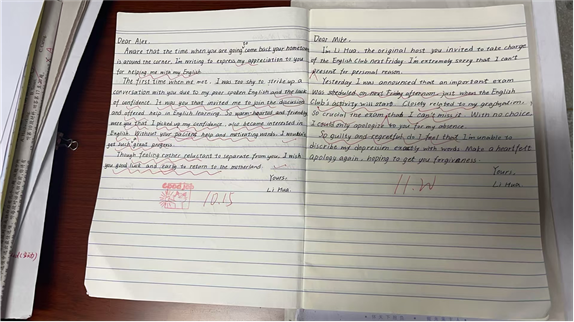 Dear Alex,
Aware that the time when you are going to come back your hometown
is around the corner, I'm writing to express my appreciation to you
for helping me with my English.
The first time when we met, I was too shy to strike up a
conversation with you due to my poor spoken English and the lack
of confidence. It was you that invited me to join the discussion
and offered help in English learning. So warm-hearted and friendly
were you that I picked up my confidence, and become interested in
English. Without your patient help and motivating words, I wouldn't
get such great progress.
Though feeling rather reluctant to separate from you, I wish
you good luck and early to return to the motherland.
Yours,
Li Hua
10.15
Dear Mike,
I'm Li Hua, the original host you invited to take charge
of the English Club next Friday. I'm extremely sorry that I can't
present for personal reason.
Yesterday I was announced that an important exam
was scheduled on next Friday afternoon, just when the English
Club's activity will start. Closely related to my
so crucial the exam that I can't miss it. With no choice,
I could only apologize to you for my absence.
So guilty and regretful do I feel that I'm unable to
describe my depression exactly with words. Make a heartfelt
apology again, hoping to get you forgiveness.
Yours,
Li Hua
11.20